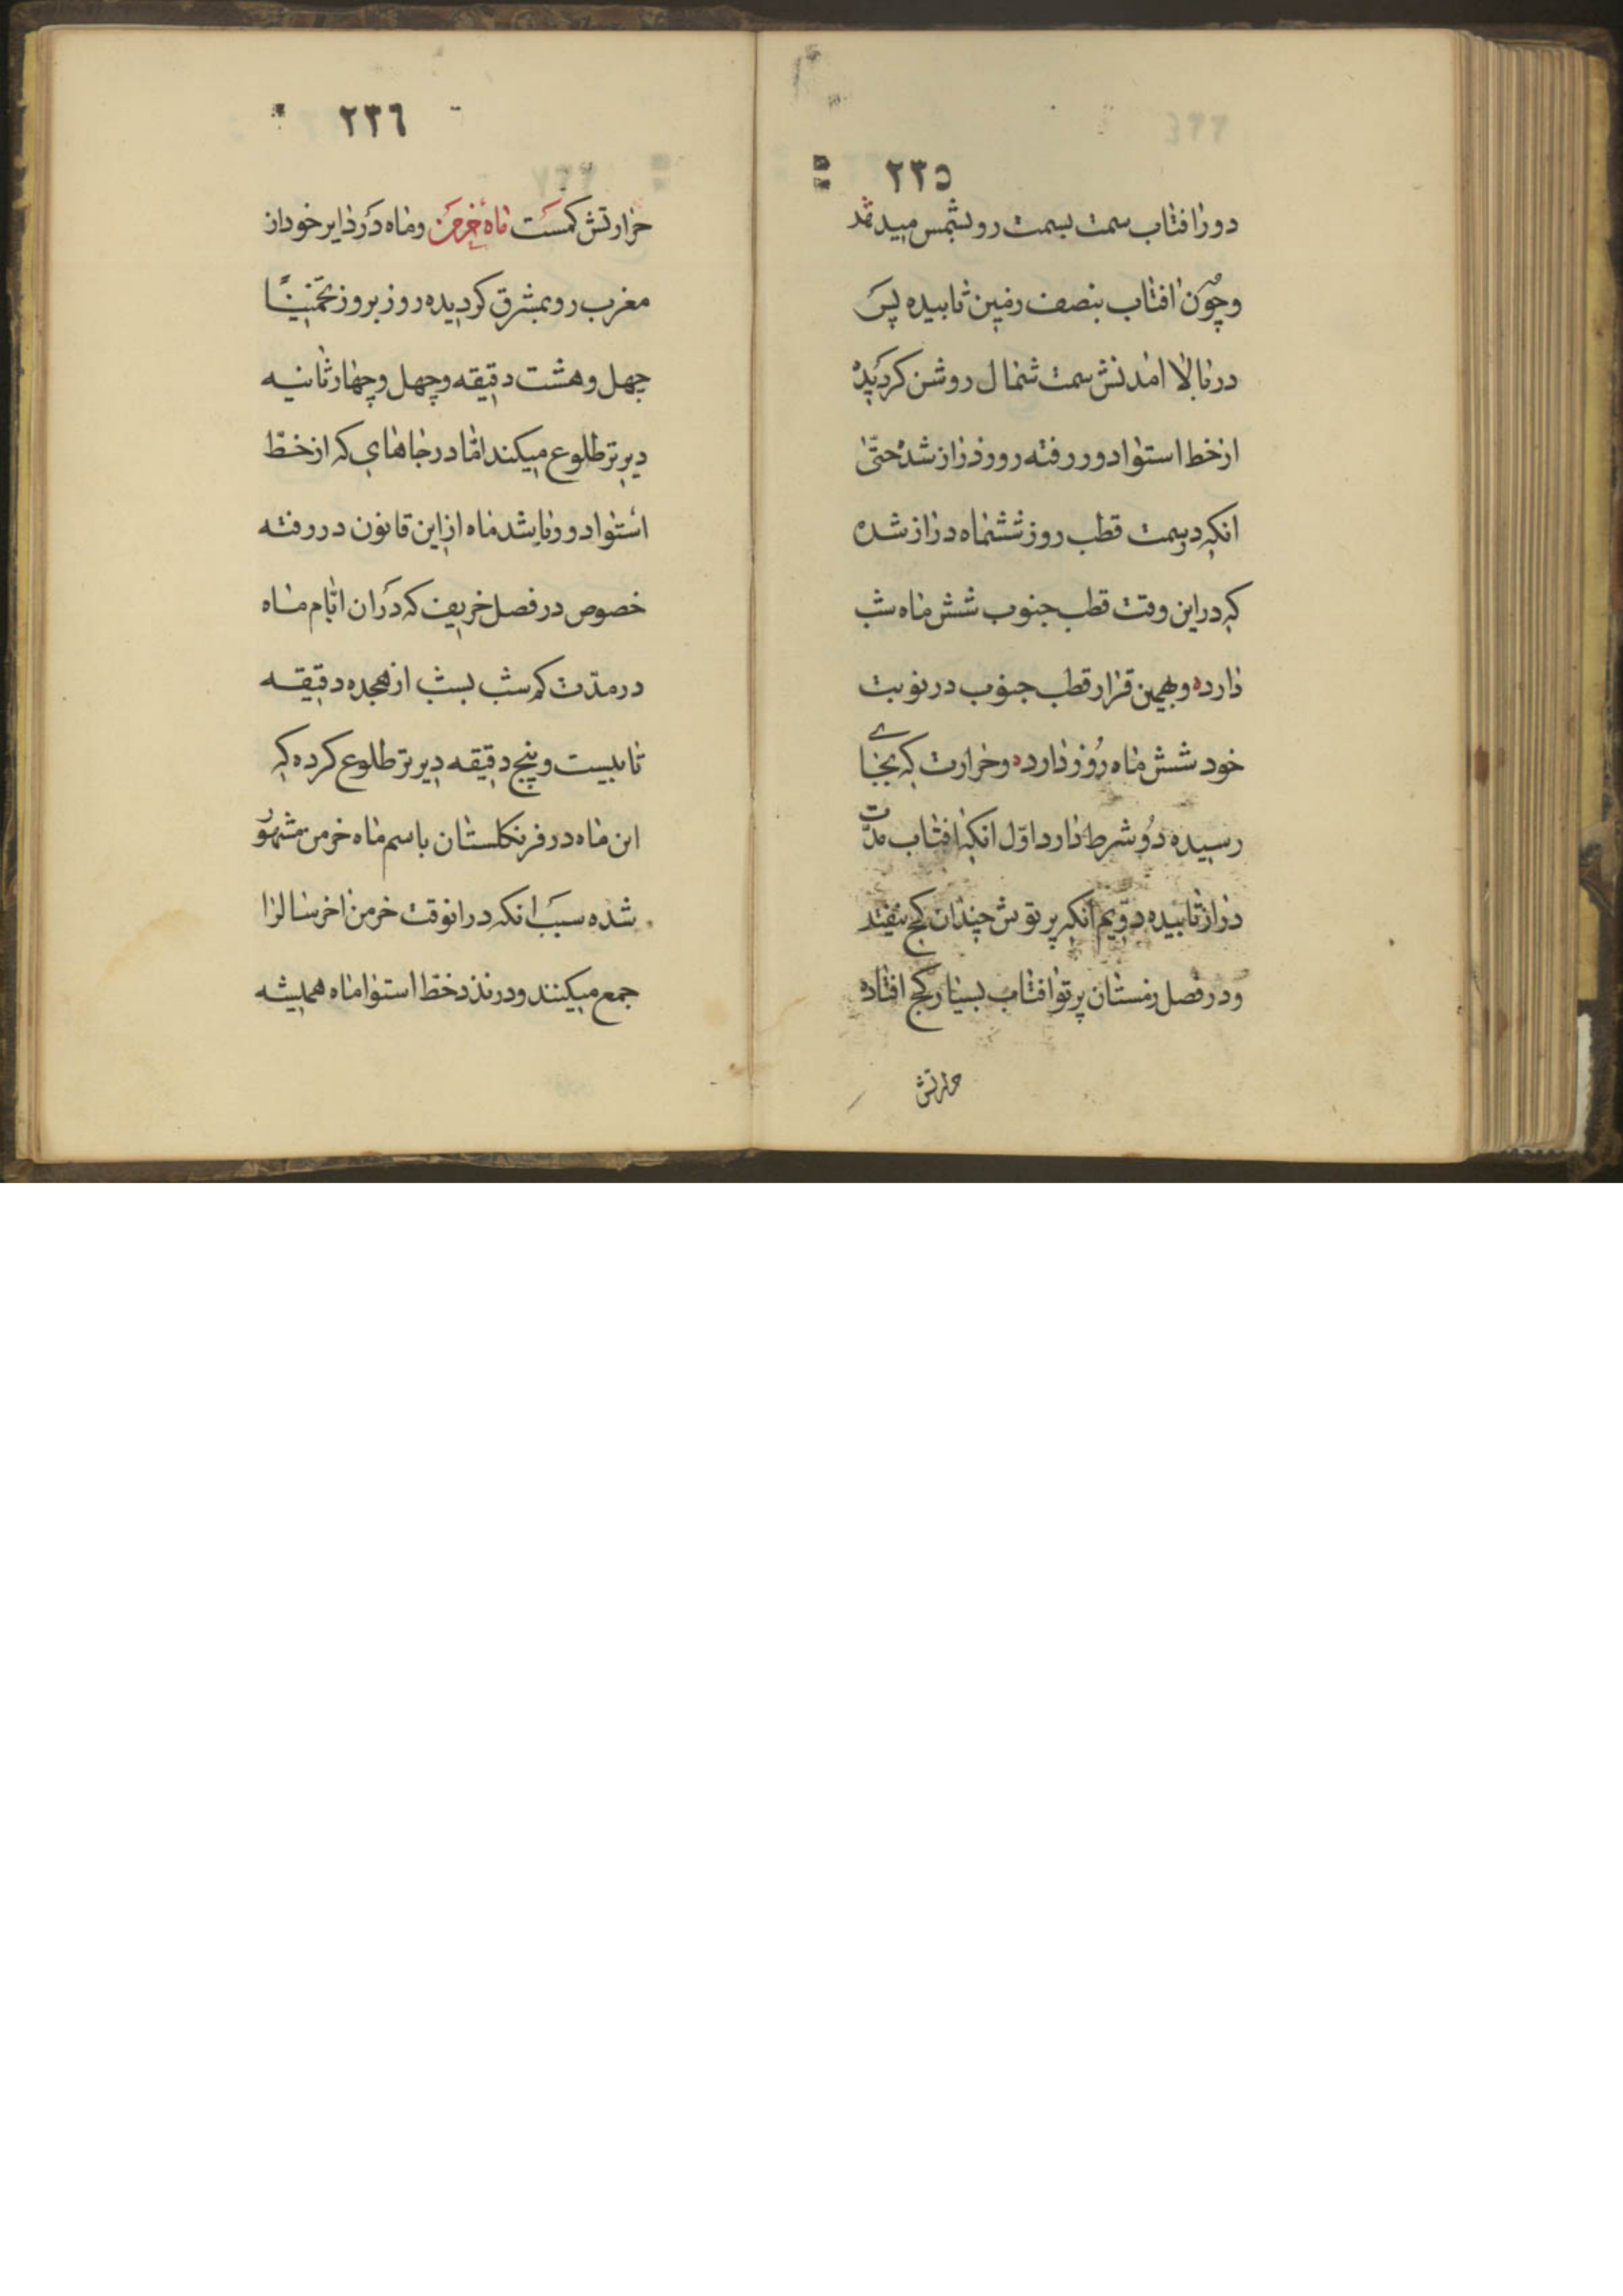 ٢٣٥
دور افتاب سمت بسمت رو بشمس میدهد
وچون افتاب بنصف زمین تابیده پس
در بالا امدنش سمت شمال روشن کردیده
از خط استوا دور رفته روز دراز شده حتّی
انکه دوسمت قطب روز ششماه دراز شده
که در این وقت قطب جنوب شش ماه شب
دارد ه و بهمین قرار قطب جنوب در نوبت
خود شش ماه روز دارد ه و حرارت که بجای
رسیده دو شرط دارد اوّل انکه افتاب مدّت
دراز تابیده دویّم انکه پرتوش چندان کج نیفتد
و در فصل زمستان پرتو افتاب بسیار کج افتاده
حرارتش
٢٣٦
حرارتش کمست ماه خرمن و ماه در دایر خود از
مغرب رو بمشرق کردیده روز بروز تخمیناً
چهل و هشت دقیقه و چهل و چهار ثانیه
دیرتر طلوع میکند امّا در جاهای که از خطّ
استوا دور باشد ماه از این قانون در رفته
خصوص در فصل خریف که در ان ایّام ماه
در مدّت کم شب بشب از هجده دقیقه
تا بیست و پنج دقیقه دیرتر طلوع کرده که
این ماه در فرنکلستان باسم ماه خرمن مشهور
شده سبب انکه در انوقت خرمن اخر سال را
جمع میکنند و در نزد خطّ استوا ماه همیشه